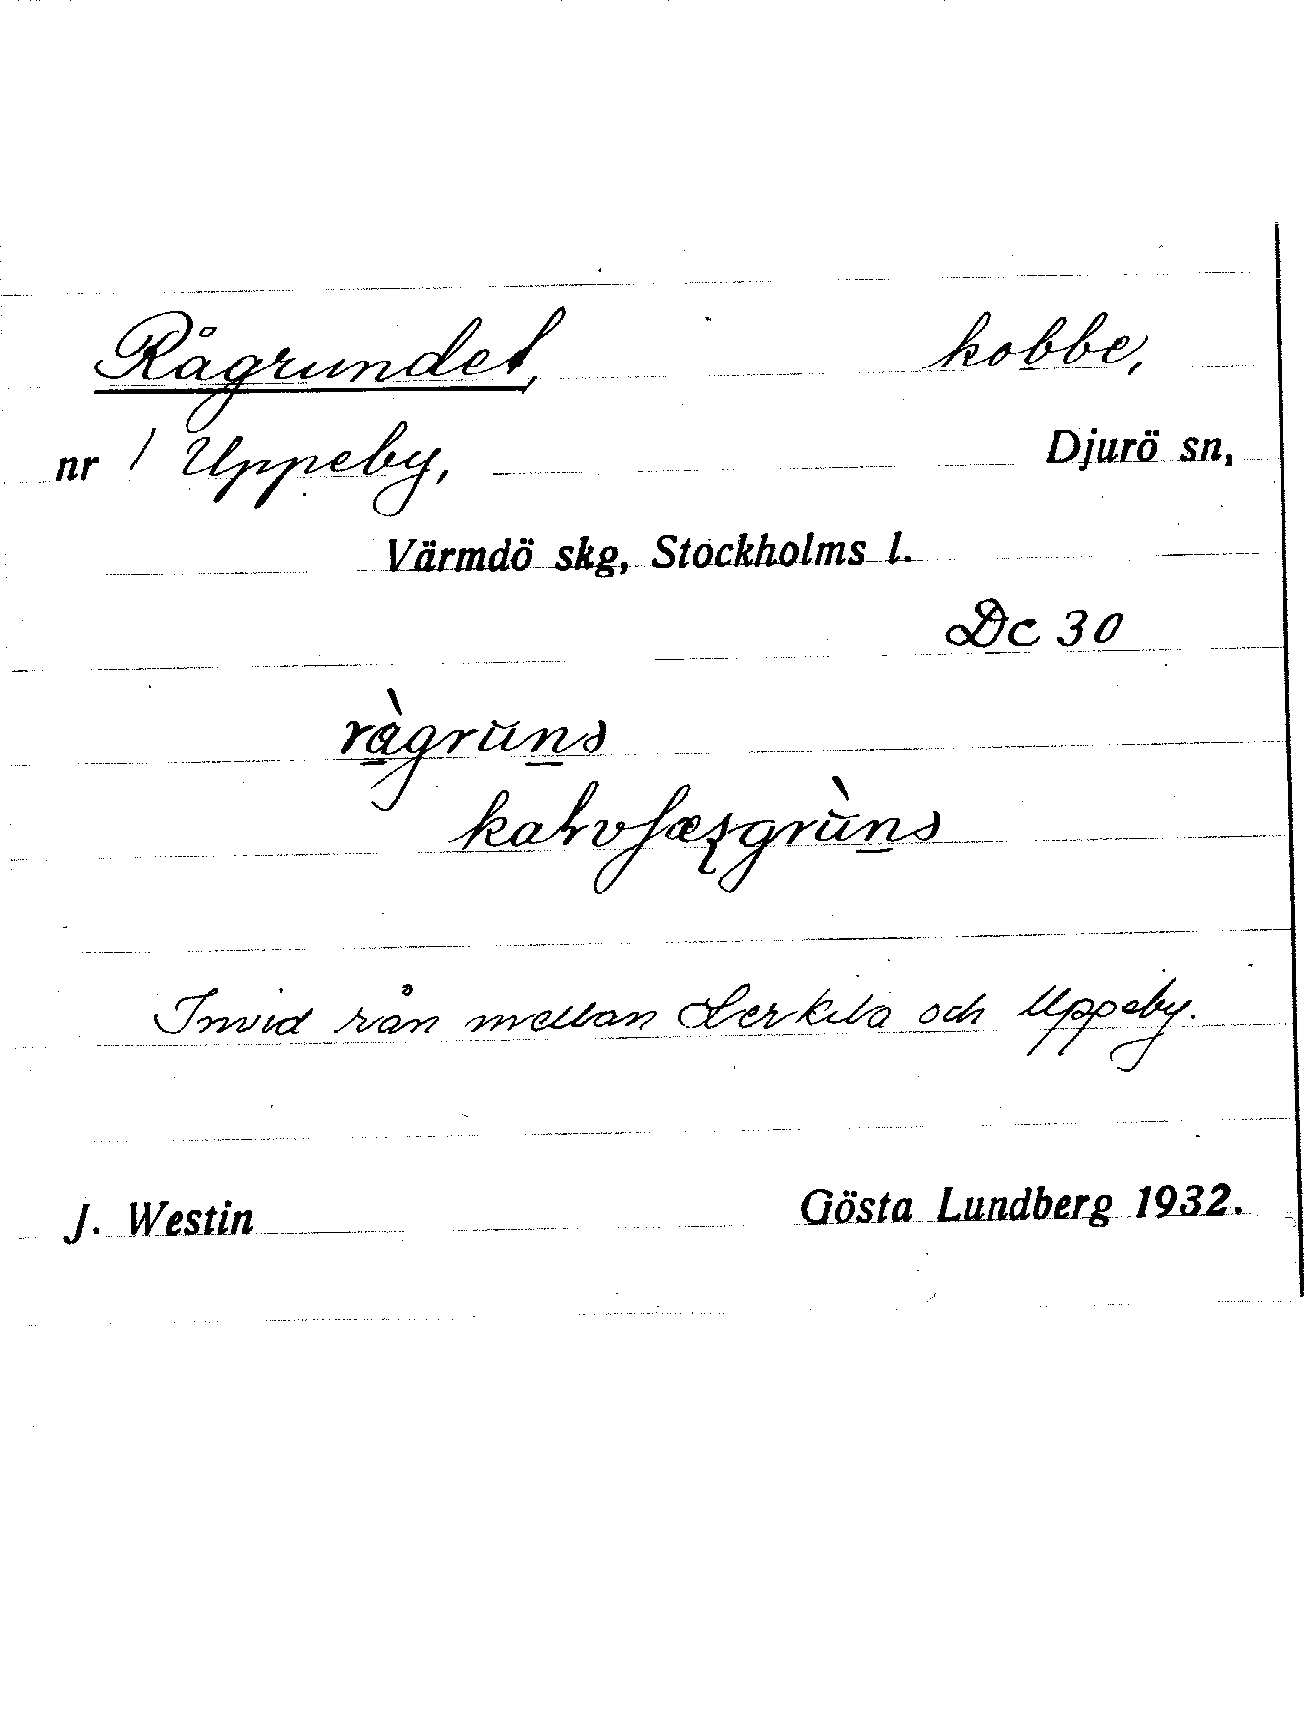 Rågrundet, kobbe,
nr 1 Uppeby, Djurö sn,
Värmdö skg, Stockholms l.
Dc 30
Invid rån mellan Lerkila och Uppeby.
J. Westin Gösta Lundberg 1932.